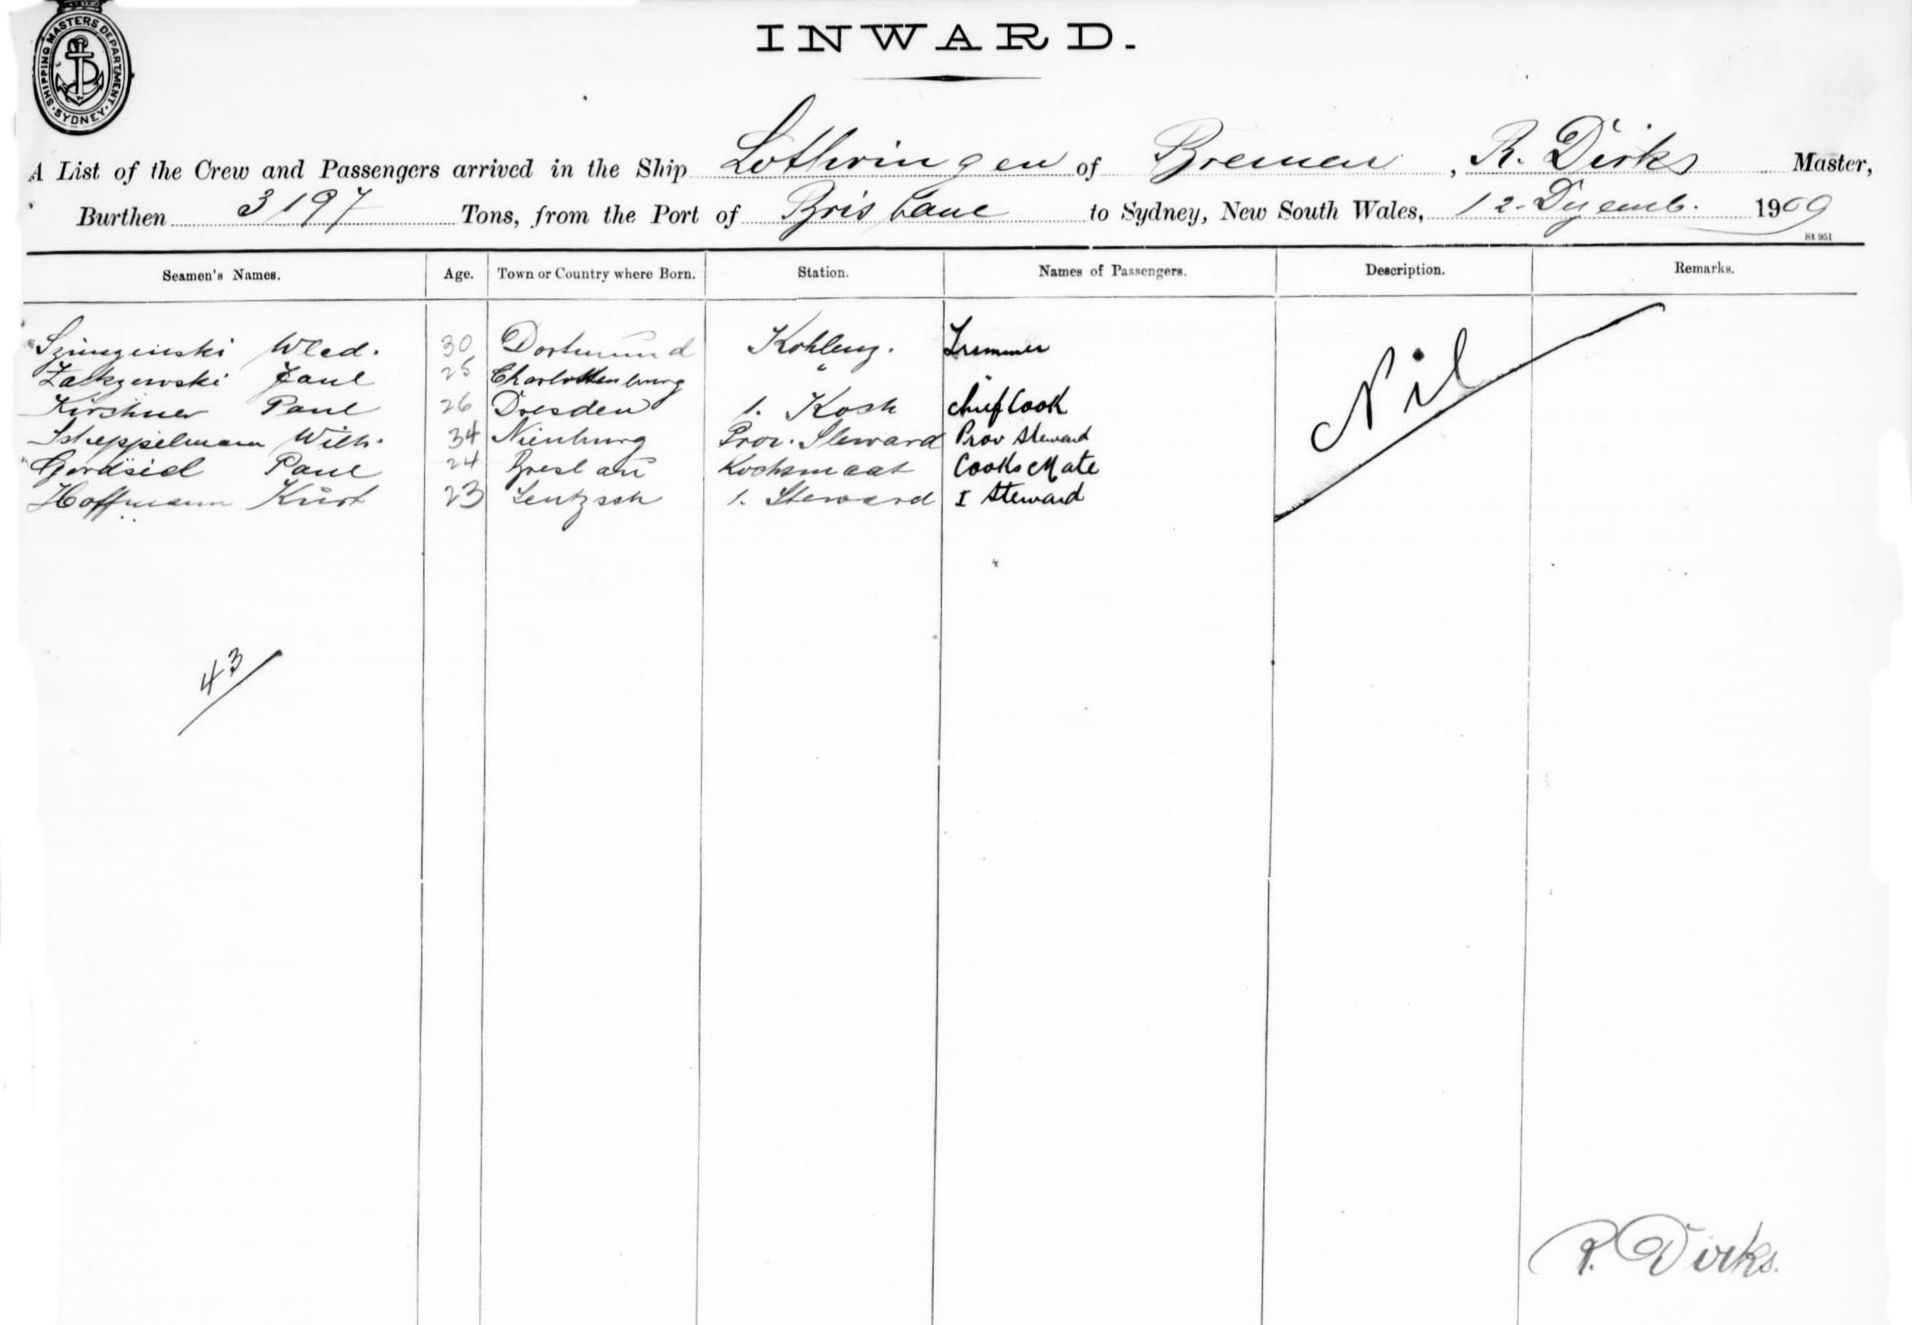 SHIPPING MASTERS DEPARTMENT. SYDNEY.
INWARD.
A List of the Crew and Passengers arrived in the Ship Lothringen of Bremen, R. Dirks Master,
Burthen 3197 Tons, from the Port of Brisbane to Sydney, New South Wales, 12. Dezemb. 1909
St 951
Seamen's Names. Age. Town or Country where Born. Station. Names of Passengers. Description. Remarks.
Wled. 30 Dortmund Kohlenz. Trimmer
Zakzewski Paul 25 Charlottenburg " 
Kirschner Paul 26 Dresden 1. Koch Chief Cook
Scheppelmann Wilh. 34 Nienburg Prov. Steward Prov Steward
Paul 24 Breslau Kochsmaat Cooks Mate
Hoffmann Kurt 23 Leutzsch 1. Steward I Steward
Nil
43
R. Dirks.